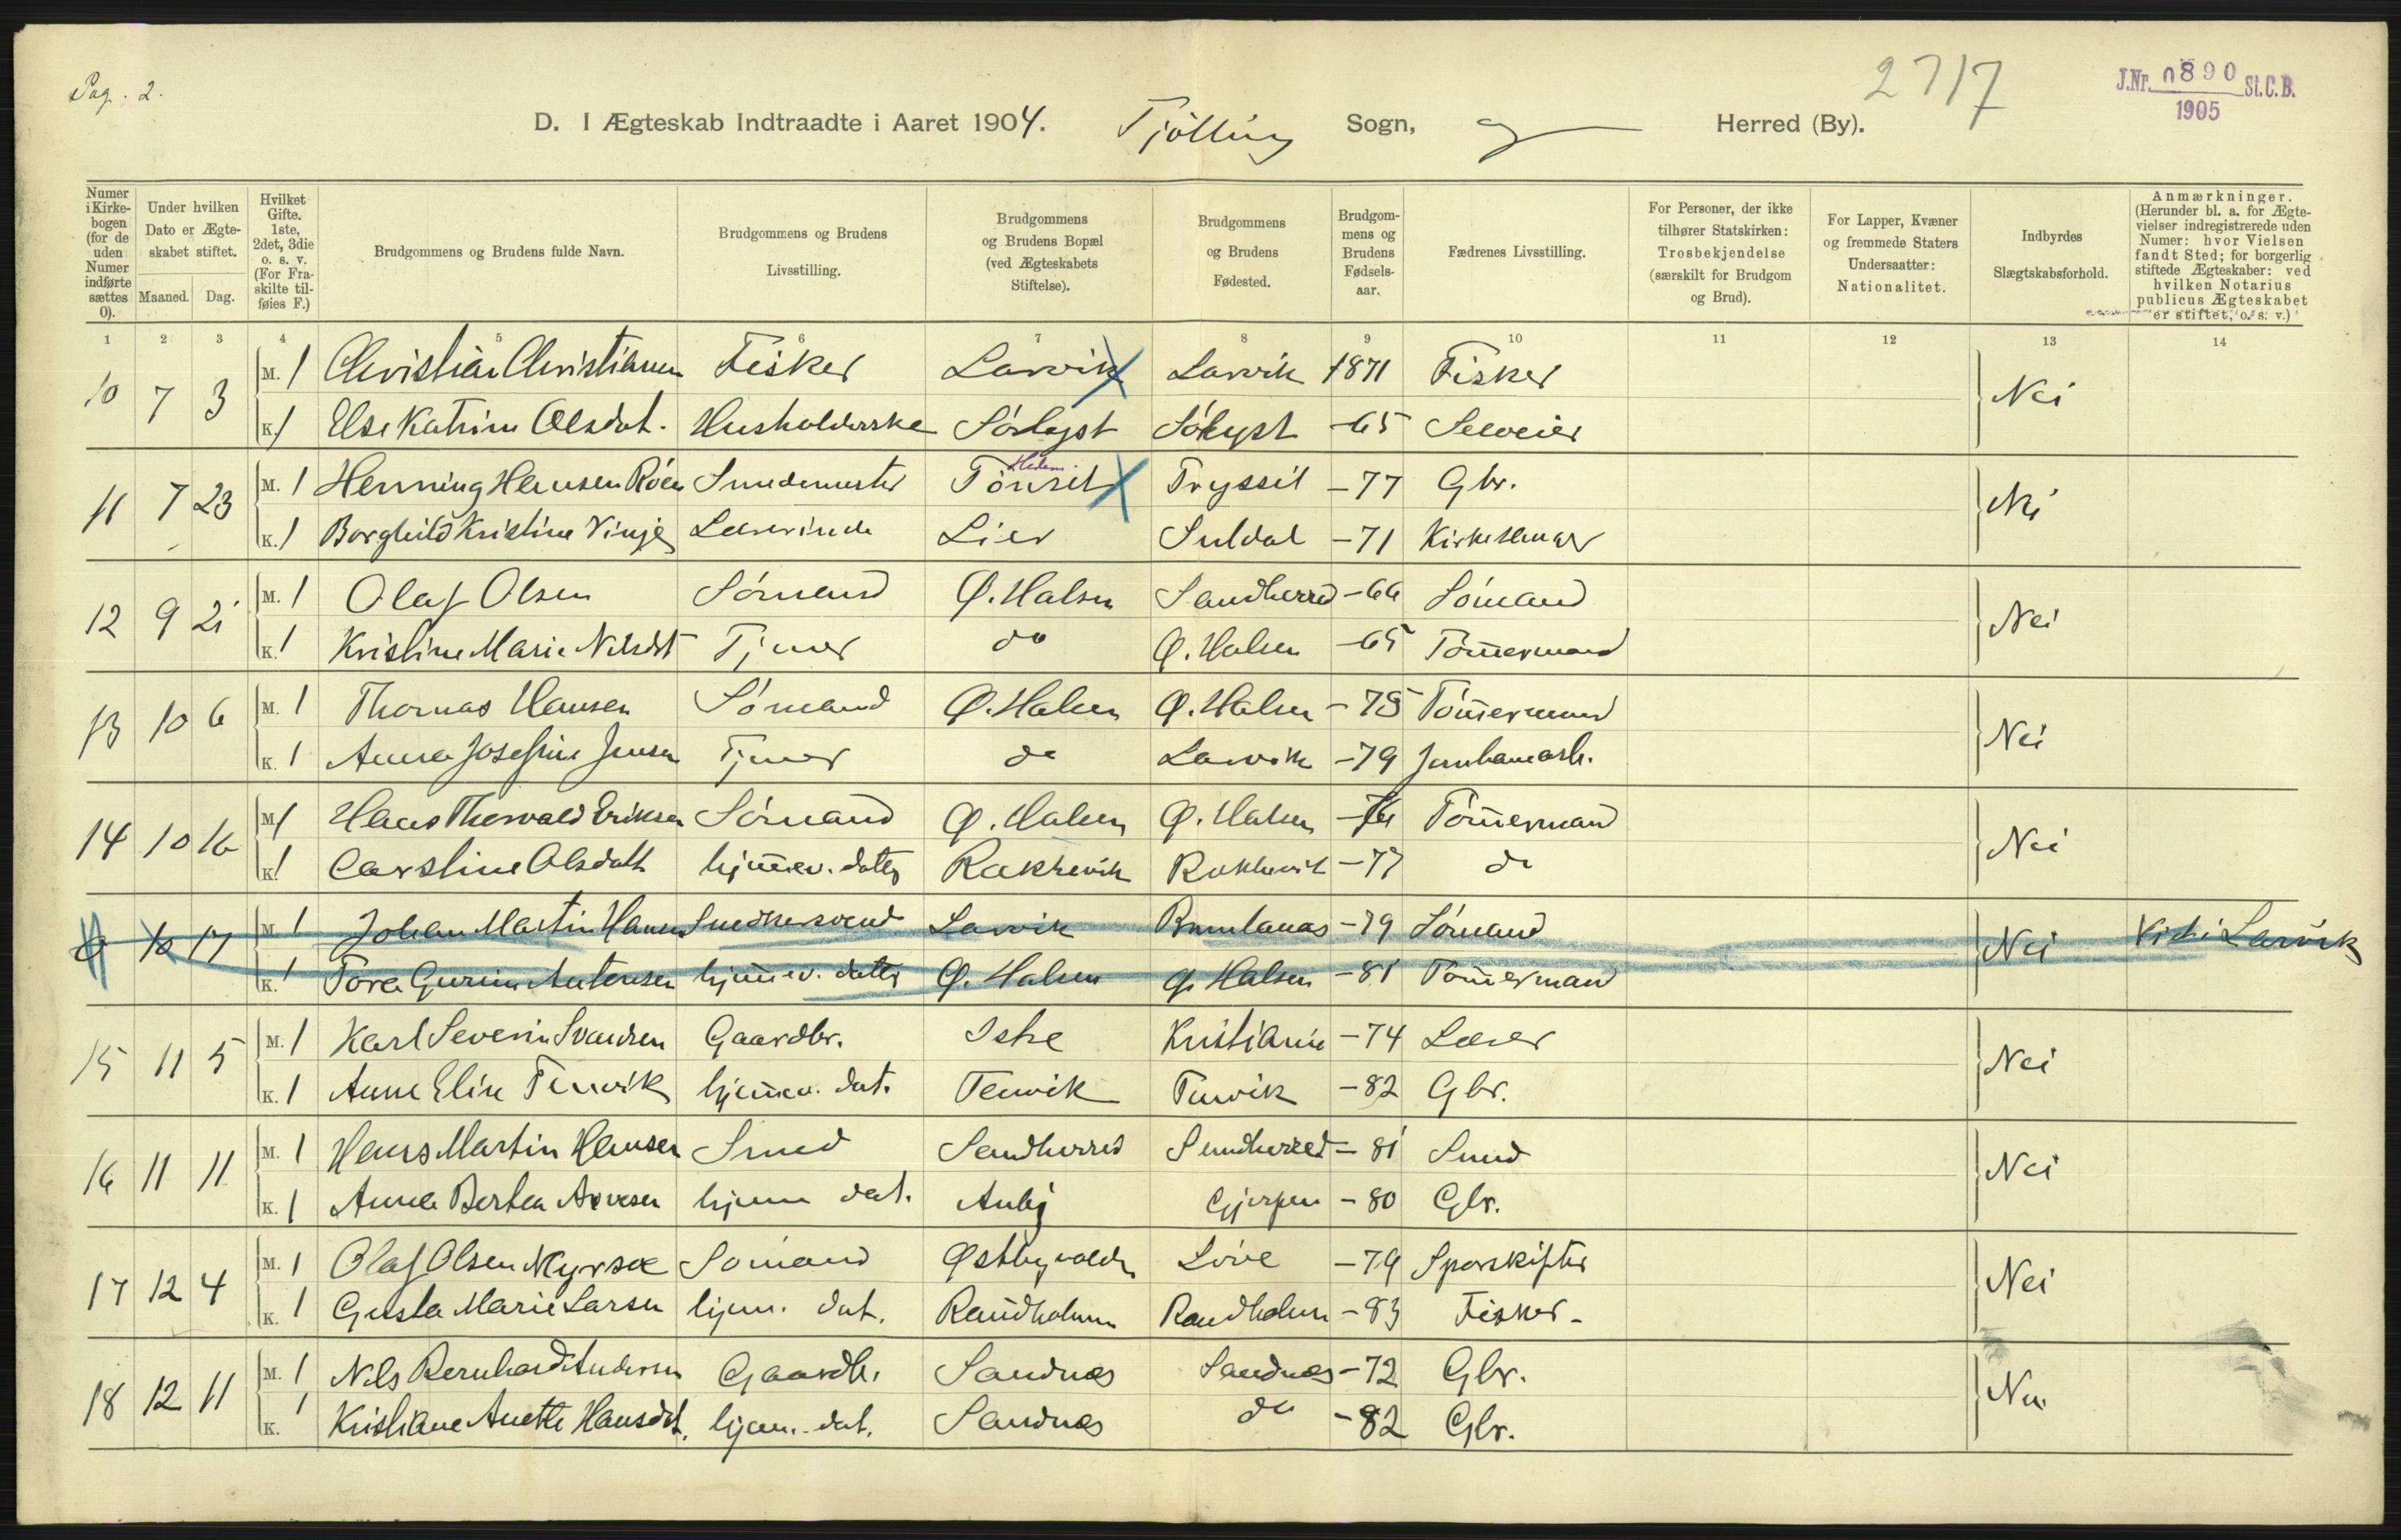 Pag. 2.
2717
J.Nr. 0890 St.C.B.
1905
D. I Ægteskab Indtraadte i Aaret 1904. Tjølling Sogn, Herred (By).
Numer i Kirkebogen (for de uden Numer indførte sættes 0).
Under hvilken Dato er Ægteskabet stiftet.
Maaned. Dag.
Hvilket Gifte. 1ste, 2det, 3die o. s. v. (For Fraskilte tilføies F.)
Brudgommens og Brudens fulde Navn.
Brudgommens og Brudens Livsstilling.
Brudgommens og Brudens Bopæl (ved Ægteskabets Stiftelse).
Brudgommens og Brudens Fødested.
Brudgommens og Brudens Fødselsaar.
Fædrenes Livsstilling.
For Personer, der ikke tilhører Statskirken: Trosbekjendelse (særskilt for Brudgom og Brud).
For Lapper, Kvæner og fremmede Staters Undersaatter: Nationalitet.
Indbyrdes Slægtskabsforhold.
Anmærkninger. (Herunder bl. a. for Ægtevielser indregistrerede uden Numer: hvor Vielsen fandt Sted; for borgerlig stiftede Ægteskaber: ved hvilken Notarius publicus Ægteskabet er stiftet, o. s. v.)
1 2 3 4 5 6 7 8 9 10 11 12 13 14
10 7 3 M. 1 Christian Christiansen Fisker Larvik Larvik 1871 Fisker Nei
K. 1 Else Katrine Olsdat. Husholderske Sørlyst Sølyst -65 Selveier
Hedem.
11 7 23 M. 1 Henning Hansen Röen Smedemester Tönset Tryssil -77 Gbr. Nei
K. 1 Borghild Kristine Vinje Lærerinde Lier Suldal -71 Kirkesanger
12 9 21 M. 1 Olaf Olsen Sömand Ø. Halsen Sandherred -66 Sömand Nei
K. 1 Kristine Marie Nilsdt Tjener do Ø. Halsen -65 Tömmermand
13 10 6 M. 1 Thomas Hansen Sömand Ø. Halsen Ø. Halsen -75 Tömmermand Nei
K. 1 Anna Josefine Jensen Tjener do Larvik -79 Jernbanearb.
14 10 16 M. 1 Hans Thorvald Eriksen Sömand Ø. Halsen Ø. Halsen Tömmermand Nei
K. 1 Carstine Olsdatt hjemmev. datter Rakkevik Rakkevik -77 do
0 10 17 M. 1 Johan Martin Hansen Snedkersvend Larvik Brunlanæs -79 Sömand Nei Viet i Larvik
K. 1 Tora Gurine Antonsen hjemmev. datter Ø. Halsen Ø. Halsen -81 Tömmermand
15 11 5 M. 1 Karl Severin Svendsen Gaardbr. Istre Kristiania -74 Lærer Nei
K. 1 Anne Elise Tenvik hjemmev. dat. Tenvik Tenvik -82 Gbr.
16 11 11 M. 1 Hans Martin Hansen Smed Sandherred Sandherred -81 Smed Nei
K. 1 Anna Bertea Arvesen hjemm dat. Auby Gjerpen -80 Gbr.
17 12 4 M. 1 Olaf Olsen Myrsæ Sömand Østbyvolden Löve -79 Sporskifter Nei
K. 1 Gusta Marie Larsen hjem. dat. Raudholmen Raudholmen -83 Fisker
18 12 11 M. 1 Nils Bernhard Andersen Gaardb. Sandnæs Sandnæs -72 Gbr. Nei
K. 1 Kristiane Anette Hansdt. hjem. dat. Sandnæs do -82 Gbr.